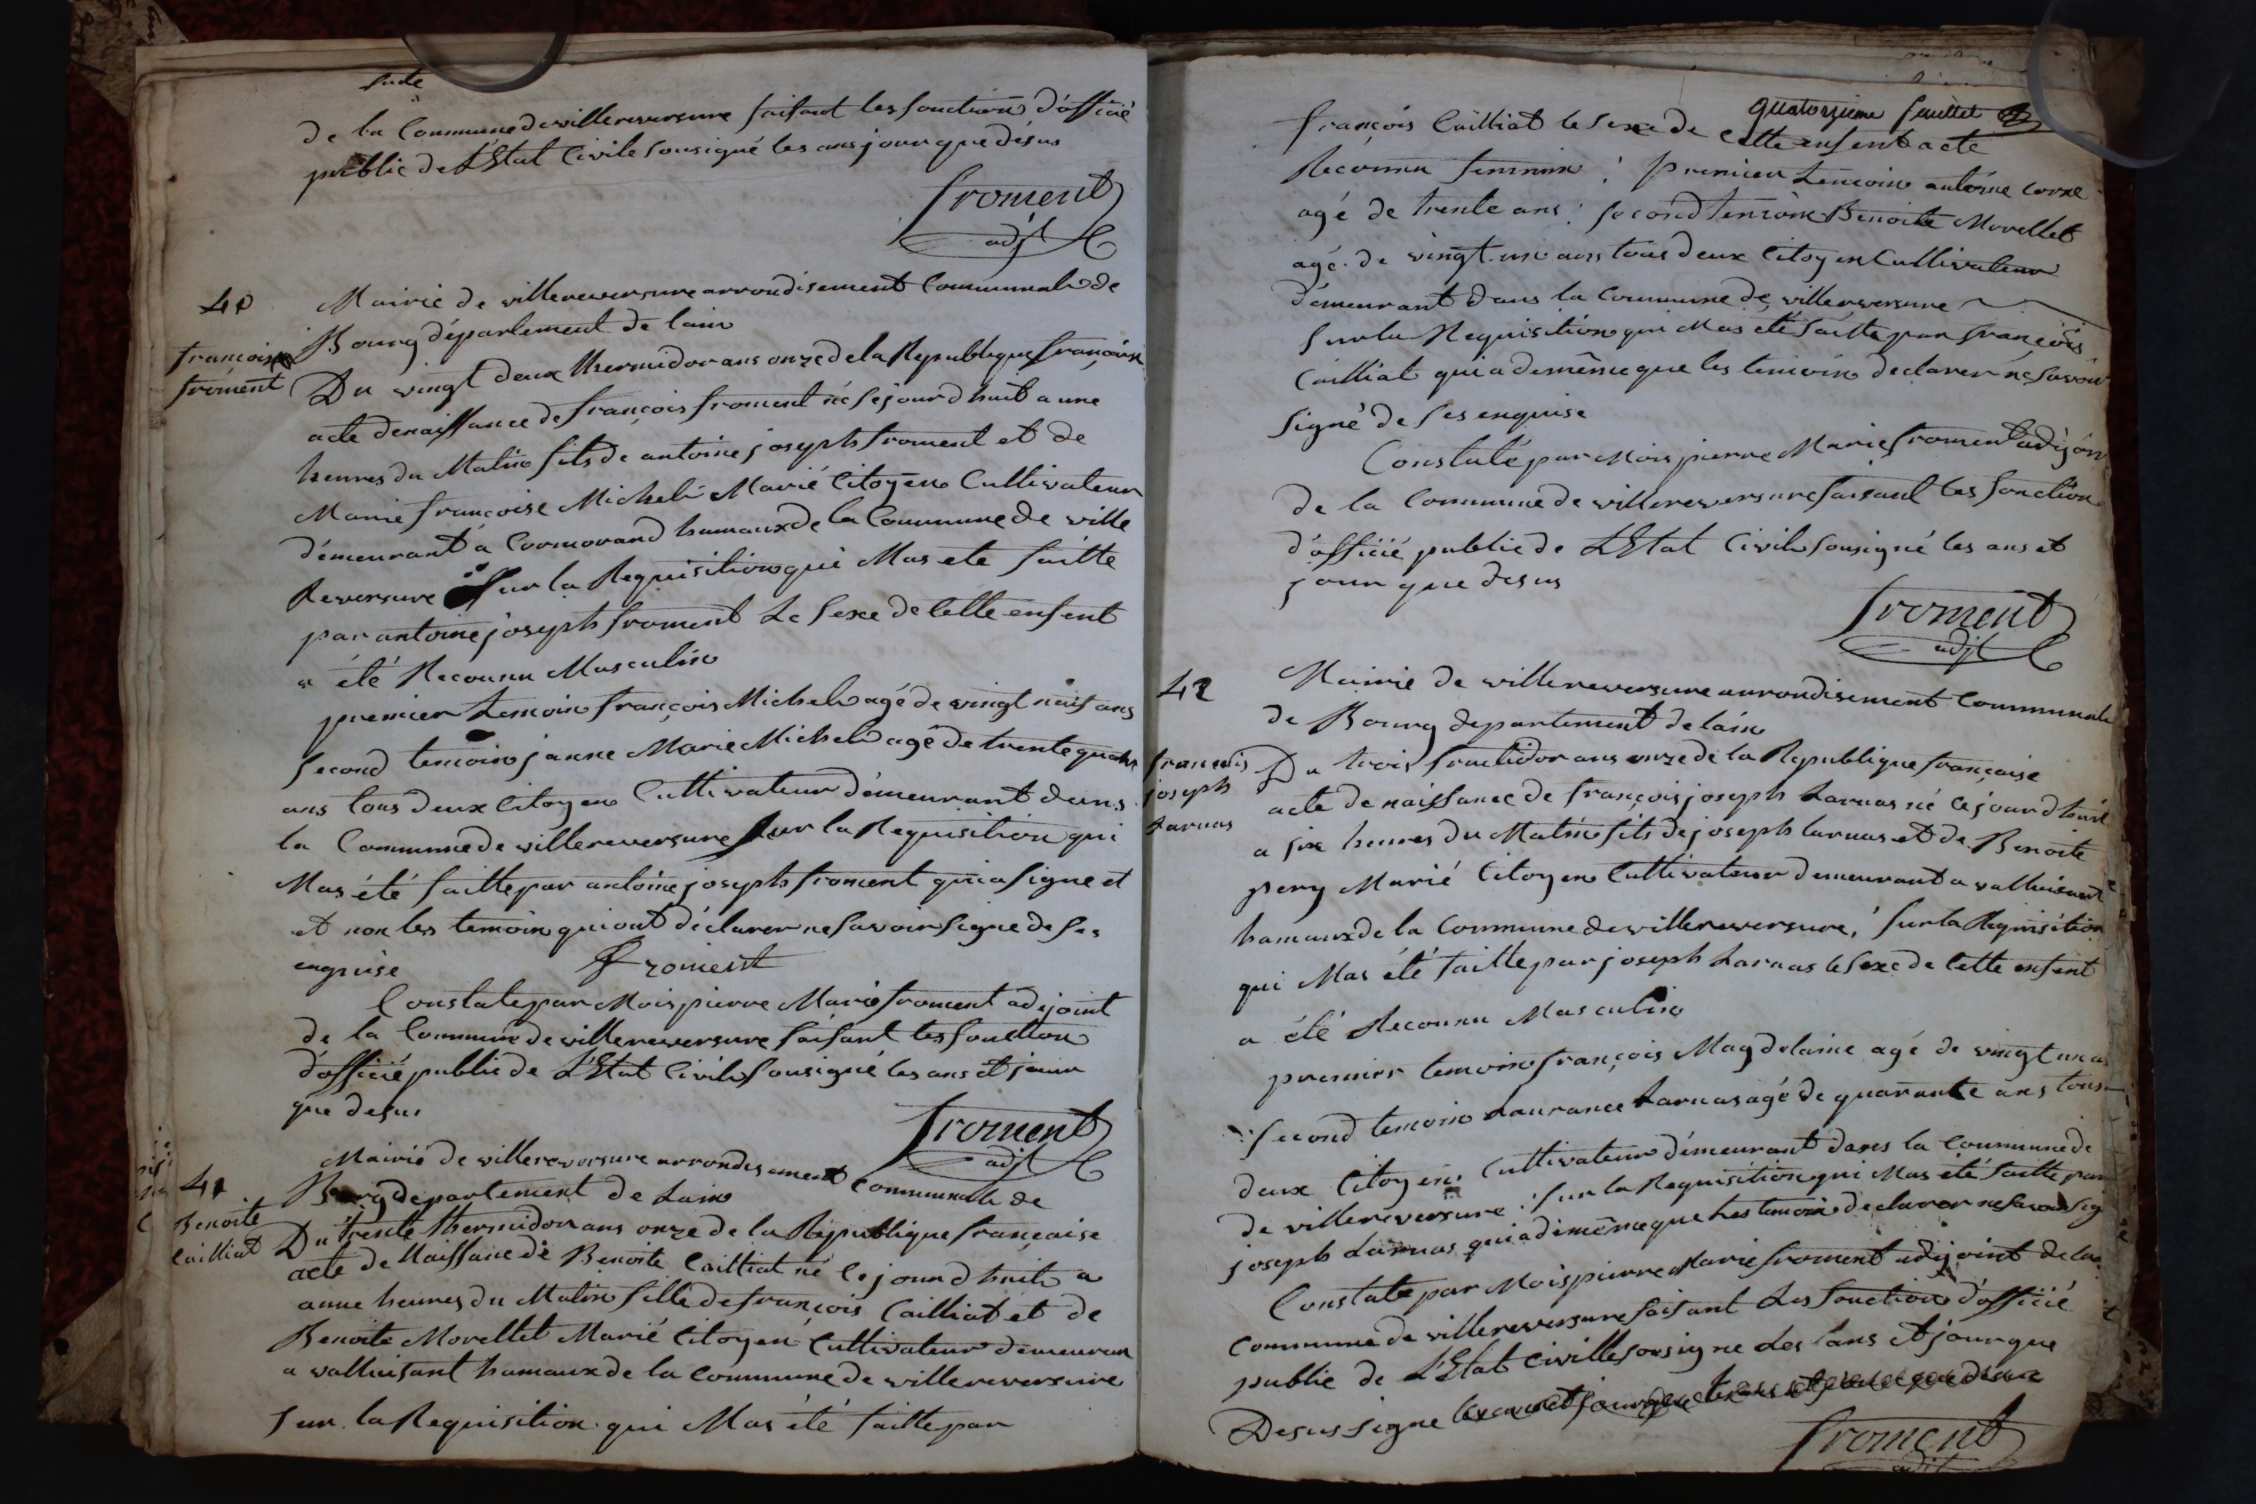 suite
de la Commune de villereversure faisant les fonction d'officié
public de L'Etat Civile sousigné les ans jour que désus
froment
adjt
40
françois
froment
Mairie de villereversure arrondisement Communale de
Bourg département de lain
Du vingt deux thermidor ans onze de la Republique françoise
acte de naissance de françois froment né sejourdhuit a une
heures du Matin fils de antoine joseph froment et de
Marie françoise Michel Marié Citoyen Cultivateur
démeurant a Cormorand hamaux de la Commune de ville
Reversure Sur la Requisition qui Mas ete faitte
par antoine joseph froment Le Sexe de Cette enfent
a été Reconnu Masculin
premier temoin françois Michel agé de vingt neuf ans
second temoin janne Marie Michel agé de trente quatre
ans tous deux Citoyen Cultivateur démeurant dans
la Commune de villereversure sur la Requisition qui
Mas été faitte par antoine joseph froment qui a signe et
et non les temoin qui ont déclarer ne savoir signe de ses
enquise froment
Constate par Mois pierre Marie froment adjoint
de la Commune de villereversure faisant les fonction
d'officié public de L'Etat Civile sousigné les ans et jour
que desus
froment
adjt
41
Benoite
Cailliat
Mairié de villereversure arrondisement communalle de
Bourg departement de Lain
Du trente thermidor ans onze de la Republique françaisе
acte de Naissance de Benoite Cailliat né Cejourdhuit a
anne heures du Matin fille de françois Cailliat et de
Benoite Morellet Marié Citoyen Cultivateur demeuran
a valluisant hamaux de la Commune de villereversure
Sur la Requisition qui Mas été faitte par
quatorzieme feuillet
françois Cailliat le Sexe de Cette enfent a été
Reconnu feminin : Premier temoin antoine
agé de trente ans : second temoin Benoite Morellet
agé de vingt un ans tous deux Citoyen Cultivateur
démeurant dans la Commune de villereversure
Sur la Requisition qui Mas été faitte par françois
Cailliat qui a demême que les temoin declarer né savoir
signé de ses enquise
Constaté par Mois pierre Marie froment adjoin
de la Commune de villereversure faisant les fonction
d'officié public de L'Etat Civile sousigné les ans et
jour que desus
froment
adjt
42
francois
joseph
Larnas
Mairie de villereversure arrondisement Communale
de Bourg departement de lain
Du trois fructidor ans onze de la Republique françaisе
acte de naissance de françois joseph Larnas né cejourdhuit
a six heures du Matin fils de joseph larnas et de Benoite
pery Marié Citoyen Cultivateur demeurant a valluisant
hamaux de la Commune de villereversure, sur la Requisition
qui Mas été faitte par joseph Larnas le Sexe de Cette enfent
a été Reconnu Masculin
premier temoin françois Magdelaine agé de vingt un ans
second temoin Laurance Larnas agé de quarante ans tous
deux Citoyen Cultivateur démeurant dans la Commune de
de villereversure : sur la Requisition qui Mas été faitte par
joseph Larnas qui a demême que Les temoin declarer ne savoir sig
Constate par Mois pierre Marie froment adjoint de la
Commune de villereversure faisant Les fonction d'officié
public de L'Etat Civille sousigne Les l'ans et jour que
Desus signe
froment
adjt